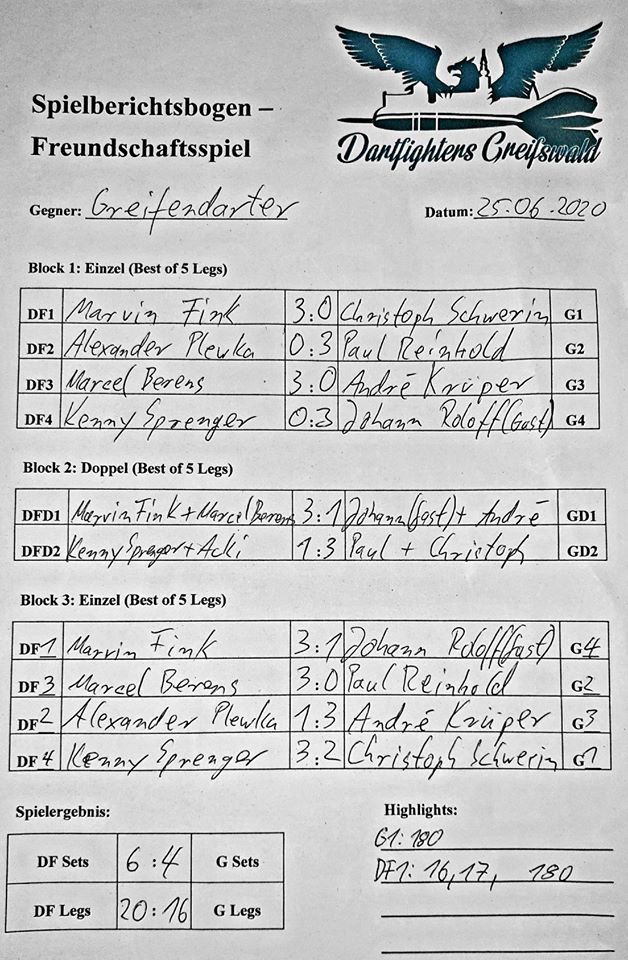 Spielberichtsbogen –
Freundschaftsspiel
Dartfighters Greifswald
Gegner: Greifendarter Datum: 25.06.2020
Block 1: Einzel (Best of 5 Legs)
DF1 Marvin Fink 3:0 Christoph Schwerin G1
DF2 Alexander Plewka 0:3 Paul Reinhold G2
DF3 Marcel Berens 3:0 André Krüper G3
DF4 Kenny Sprenger 0:3 Johann Roloff (Gast) G4
Block 2: Doppel (Best of 5 Legs)
DFD1 Marvin Fink + Marcel Berens 3:1 Johann (Gast) + André GD1
DFD2 Kenny Sprenger + Acki 1:3 Paul + Christoph GD2
Block 3: Einzel (Best of 5 Legs)
DF 1 Marvin Fink 3:1 Johann Roloff (Gast) G4
DF 3 Marcel Berens 3:0 Paul Reinhold G2
DF 2 Alexander Plewka 1:3 André Krüper G3
DF 4 Kenny Sprenger 3:2 Christoph Schwerin G1
Spielergebnis: Highlights:
G1: 180
DF Sets 6:4 G Sets DF1: 16, 17, 180
DF Legs 20:16 G Legs